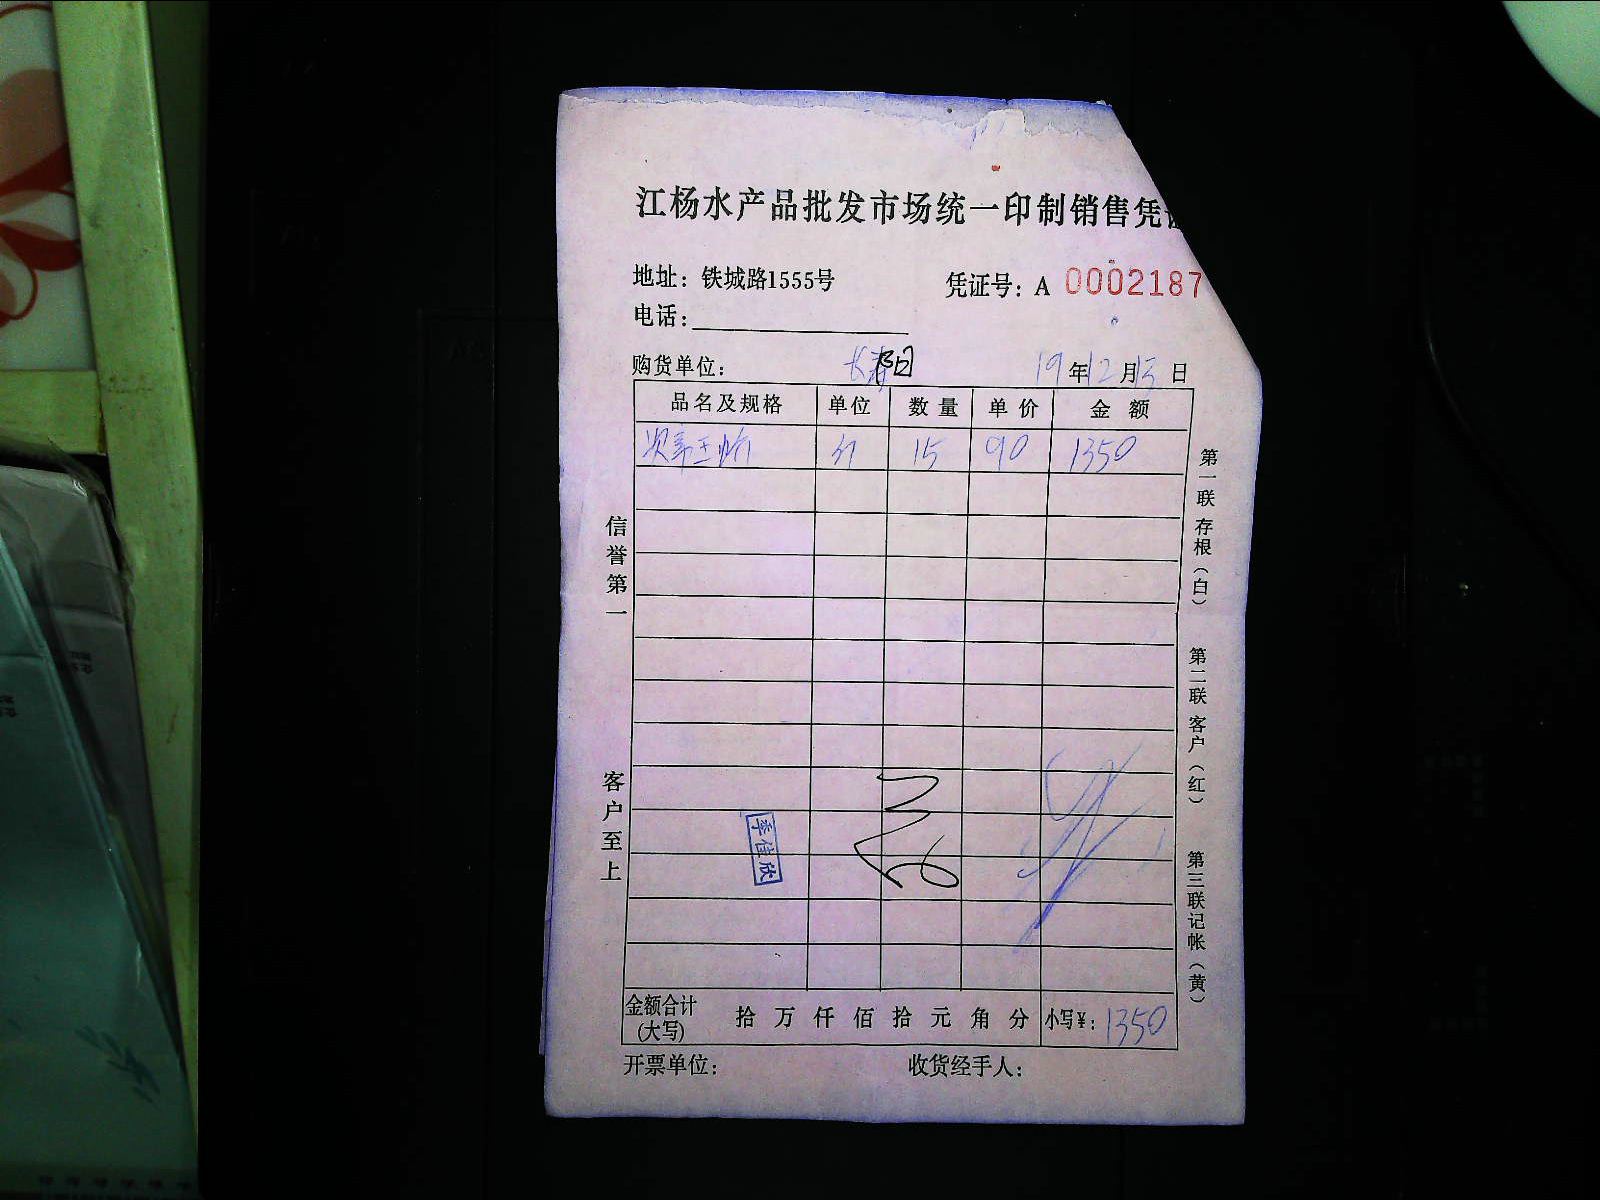 江杨水产品批发市场统一印制销售凭证
地址：铁城路1555号
凭证号：A 0002187
电话：
购货单位：长寿
19年12月13日
品名及规格 单位 数量 单价 金额
15 90 1350
信誉第一
客户至上
第一联 存根（白）
第二联 客户（红）
第三联 记帐（黄）
季佳欣
金额合计（大写） 拾 万 仟 佰 拾 元 角 分 小写¥：1350
开票单位： 收货经手人：